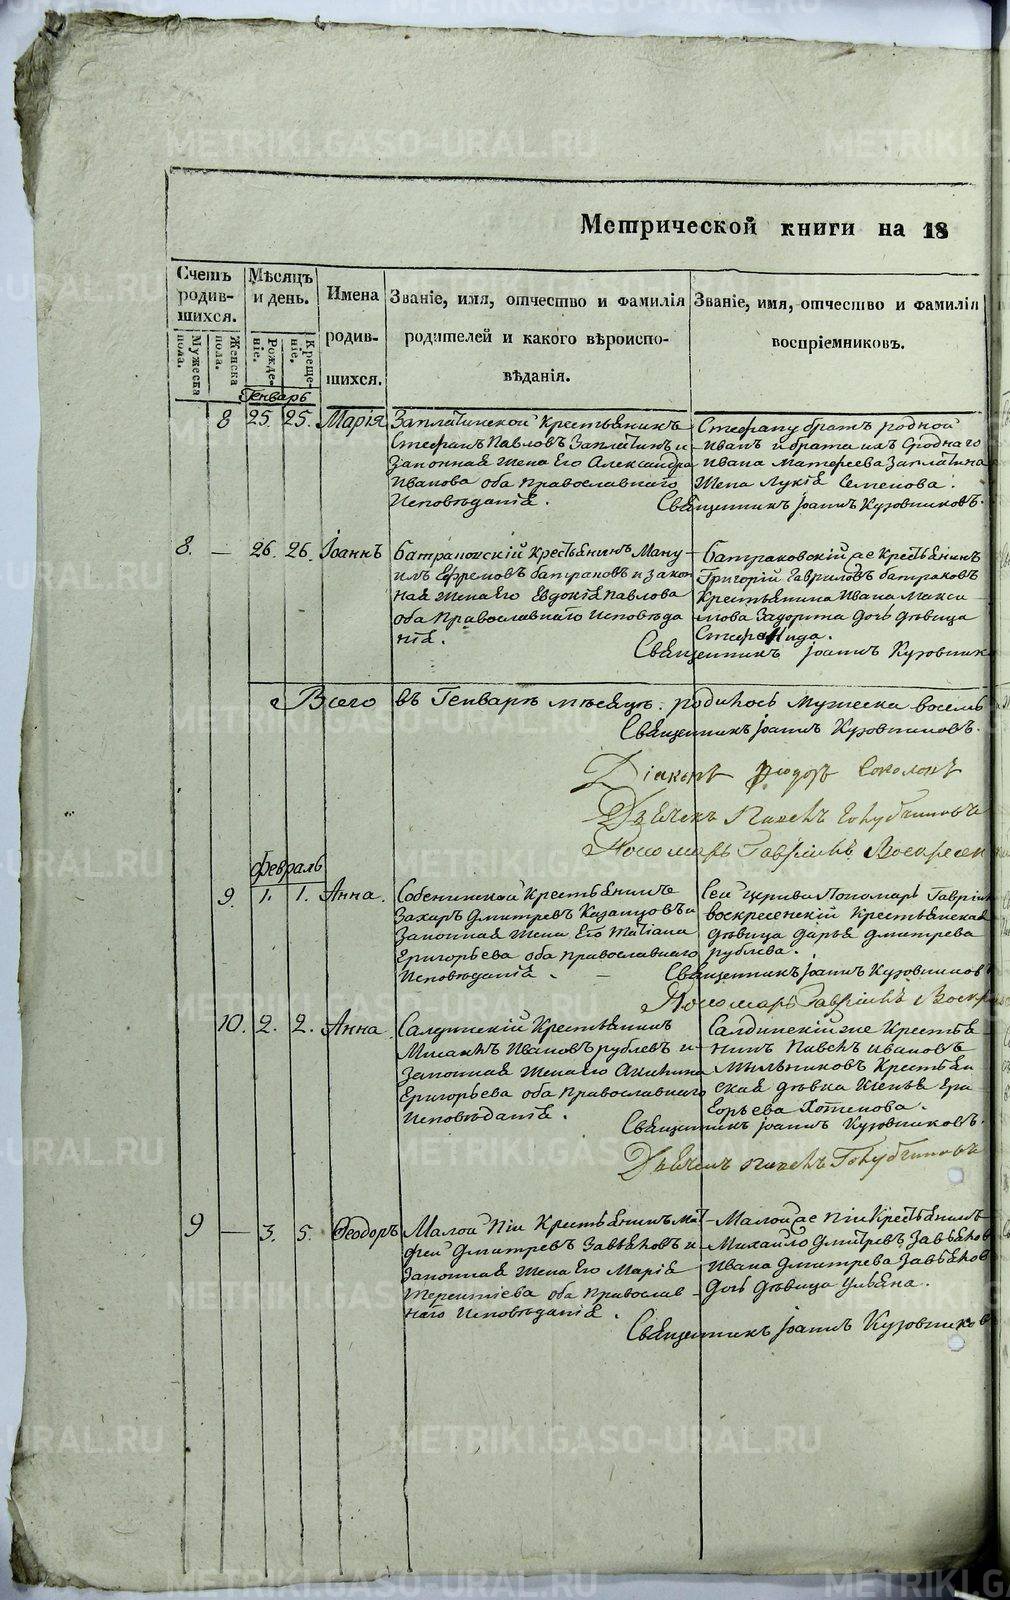 Метрической книги на 18
Счетъ родив- шихся.
Мѣсяцъ и день.
Имена родив- шихся.
Званіе, имя, отчество и фамилія родителей и какого вѣроиспо- вѣданія.
Званіе, имя, отчество и фамилія воспріемниковъ.
Мужеска пола.
Женска пола.
Рожде- ніе.
Креще- ніе.
Генварь
8 25. 25. Марія
Заплатинской Крестьянинъ
Стефанъ Павловъ Заплатинъ и
Законная жена Его Александра
Иванова оба Православнаго
Исповѣданія.
Стефану братъ родной
Иванъ и брата ихъ Сроднаго
Ивана Матфеева Заплатина
жена Лукія Семенова.
Священникъ Іоаннъ Кузовниковъ.
8. — 26. 26. Іоаннъ
Батраковскій Крестьянинъ Ману
илъ Ефремовъ батраковъ и закон
ная жена Его Евдокія Павлова
оба Православнаго Исповѣда
нія.
Батраковскій же Крестьянинъ
Григорій Гавриловъ батраковъ
Крестьянина Ивана Макси
мова Задорина дочь дѣвица
Стефанида.
Священникъ Іоаннъ Кузовник
Всего въ Генварѣ мѣсяцѣ. родилось Мужеска восемь
Священникъ Іоаннъ Кузовниковъ.
Діаконъ Ѳеодоръ Соколовъ
Дьячекъ Павелъ Голубчиковъ
Пономарь Гавріилъ Воскресен
Февраль
9. 1. 1. Анна.
Собенинской Крестьянинъ
Захаръ Дмитревъ Казанцовъ и
Законная жена Его Татіана
Григорьева оба Православнаго
Исповѣданія. —
Сей церкви Пономарь Гавріилъ
воскресенскій Крестьянская
дѣвица Дарья Дмитрева
рублева.
Священникъ Іоаннъ Кузовников
Пономарь Гавріилъ Воскр
10. 2. 2. Анна
Салдинскій Крестьянинъ
Михаилъ Ивановъ рублевъ и
Законная жена Его Акилина
Григорьева оба Православнаго
Исповѣданія.
Салдинскій же Крестья
нинъ Павелъ Ивановъ
Мыльниковъ Крестьян
ская дѣвка Ксенья Гри
горьева Хотенова.
Священникъ Іоаннъ Кузовниковъ.
Дьячекъ Павелъ Голубчиковъ
9 — 3. 5. Ѳеодоръ
Малой Піи Крестьянинъ Мат
фей Дмитревъ Завьяловъ и
Законная жена Его Марія
Терентіева оба Православ
наго Исповѣданія.
Малой же Піи Крестьянинъ
Михайло Дмитревъ Завьялов
Ивана Дмитрева Завьялов
дочь дѣвица Ульяна.
Священникъ Іоаннъ Кузовников